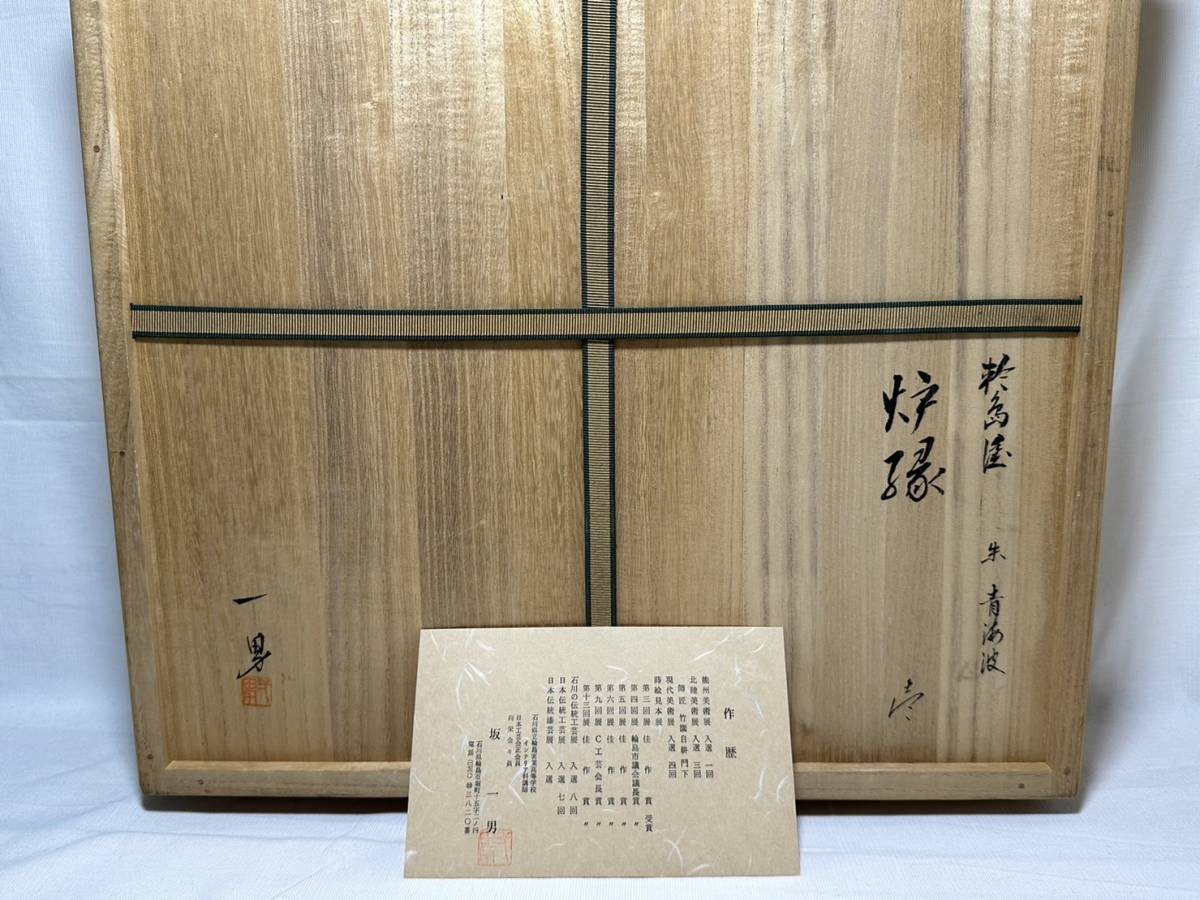 輪島塗 朱 青海波 壱
炉縁
一男
作歴
能州美術展 入選 一回
北陸美術展 入選 三回
師匠 竹園自耕門下
現代美術展 入選 四回
蒔絵見本展
第三回展 佳作賞 受賞
第四回展 輪島市議会議長賞 〃
第五回展 佳作賞 〃
第六回展 佳作賞 〃
第九回展 C工芸会長賞 〃
第十三回展 佳作賞 〃
石川の伝統工芸展 入選 八回
日本伝統工芸展 入選 七回
日本伝統漆芸展 入選
石川県立輪島実業高等学校
インテリア科講師
日本工芸会正会員
坂一男